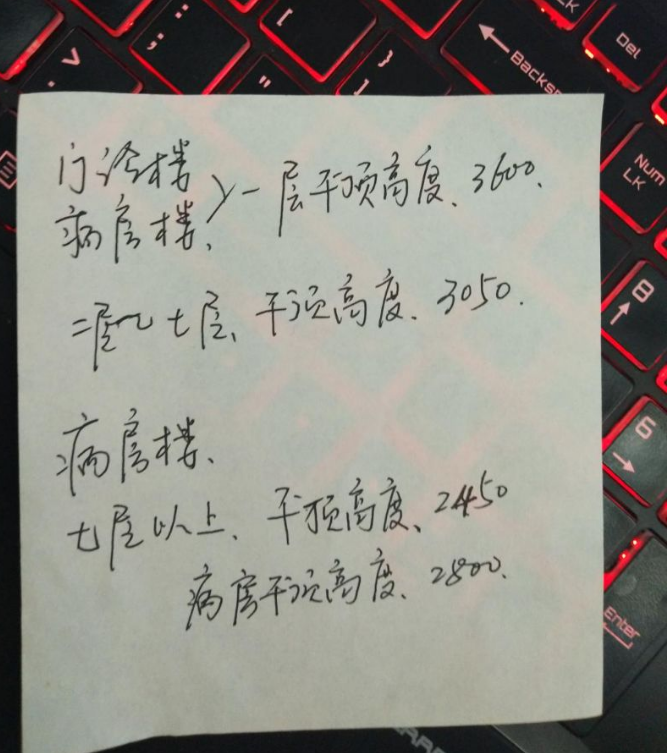 门诊楼
病房楼、
>一层平顶高度、3600.
二层~七层、平顶高度、3050.
病房楼、
七层以上、平顶高度、2450
病房平顶高度、2800.
Backsp
Del
Num
LK
LK
8
6
Enter